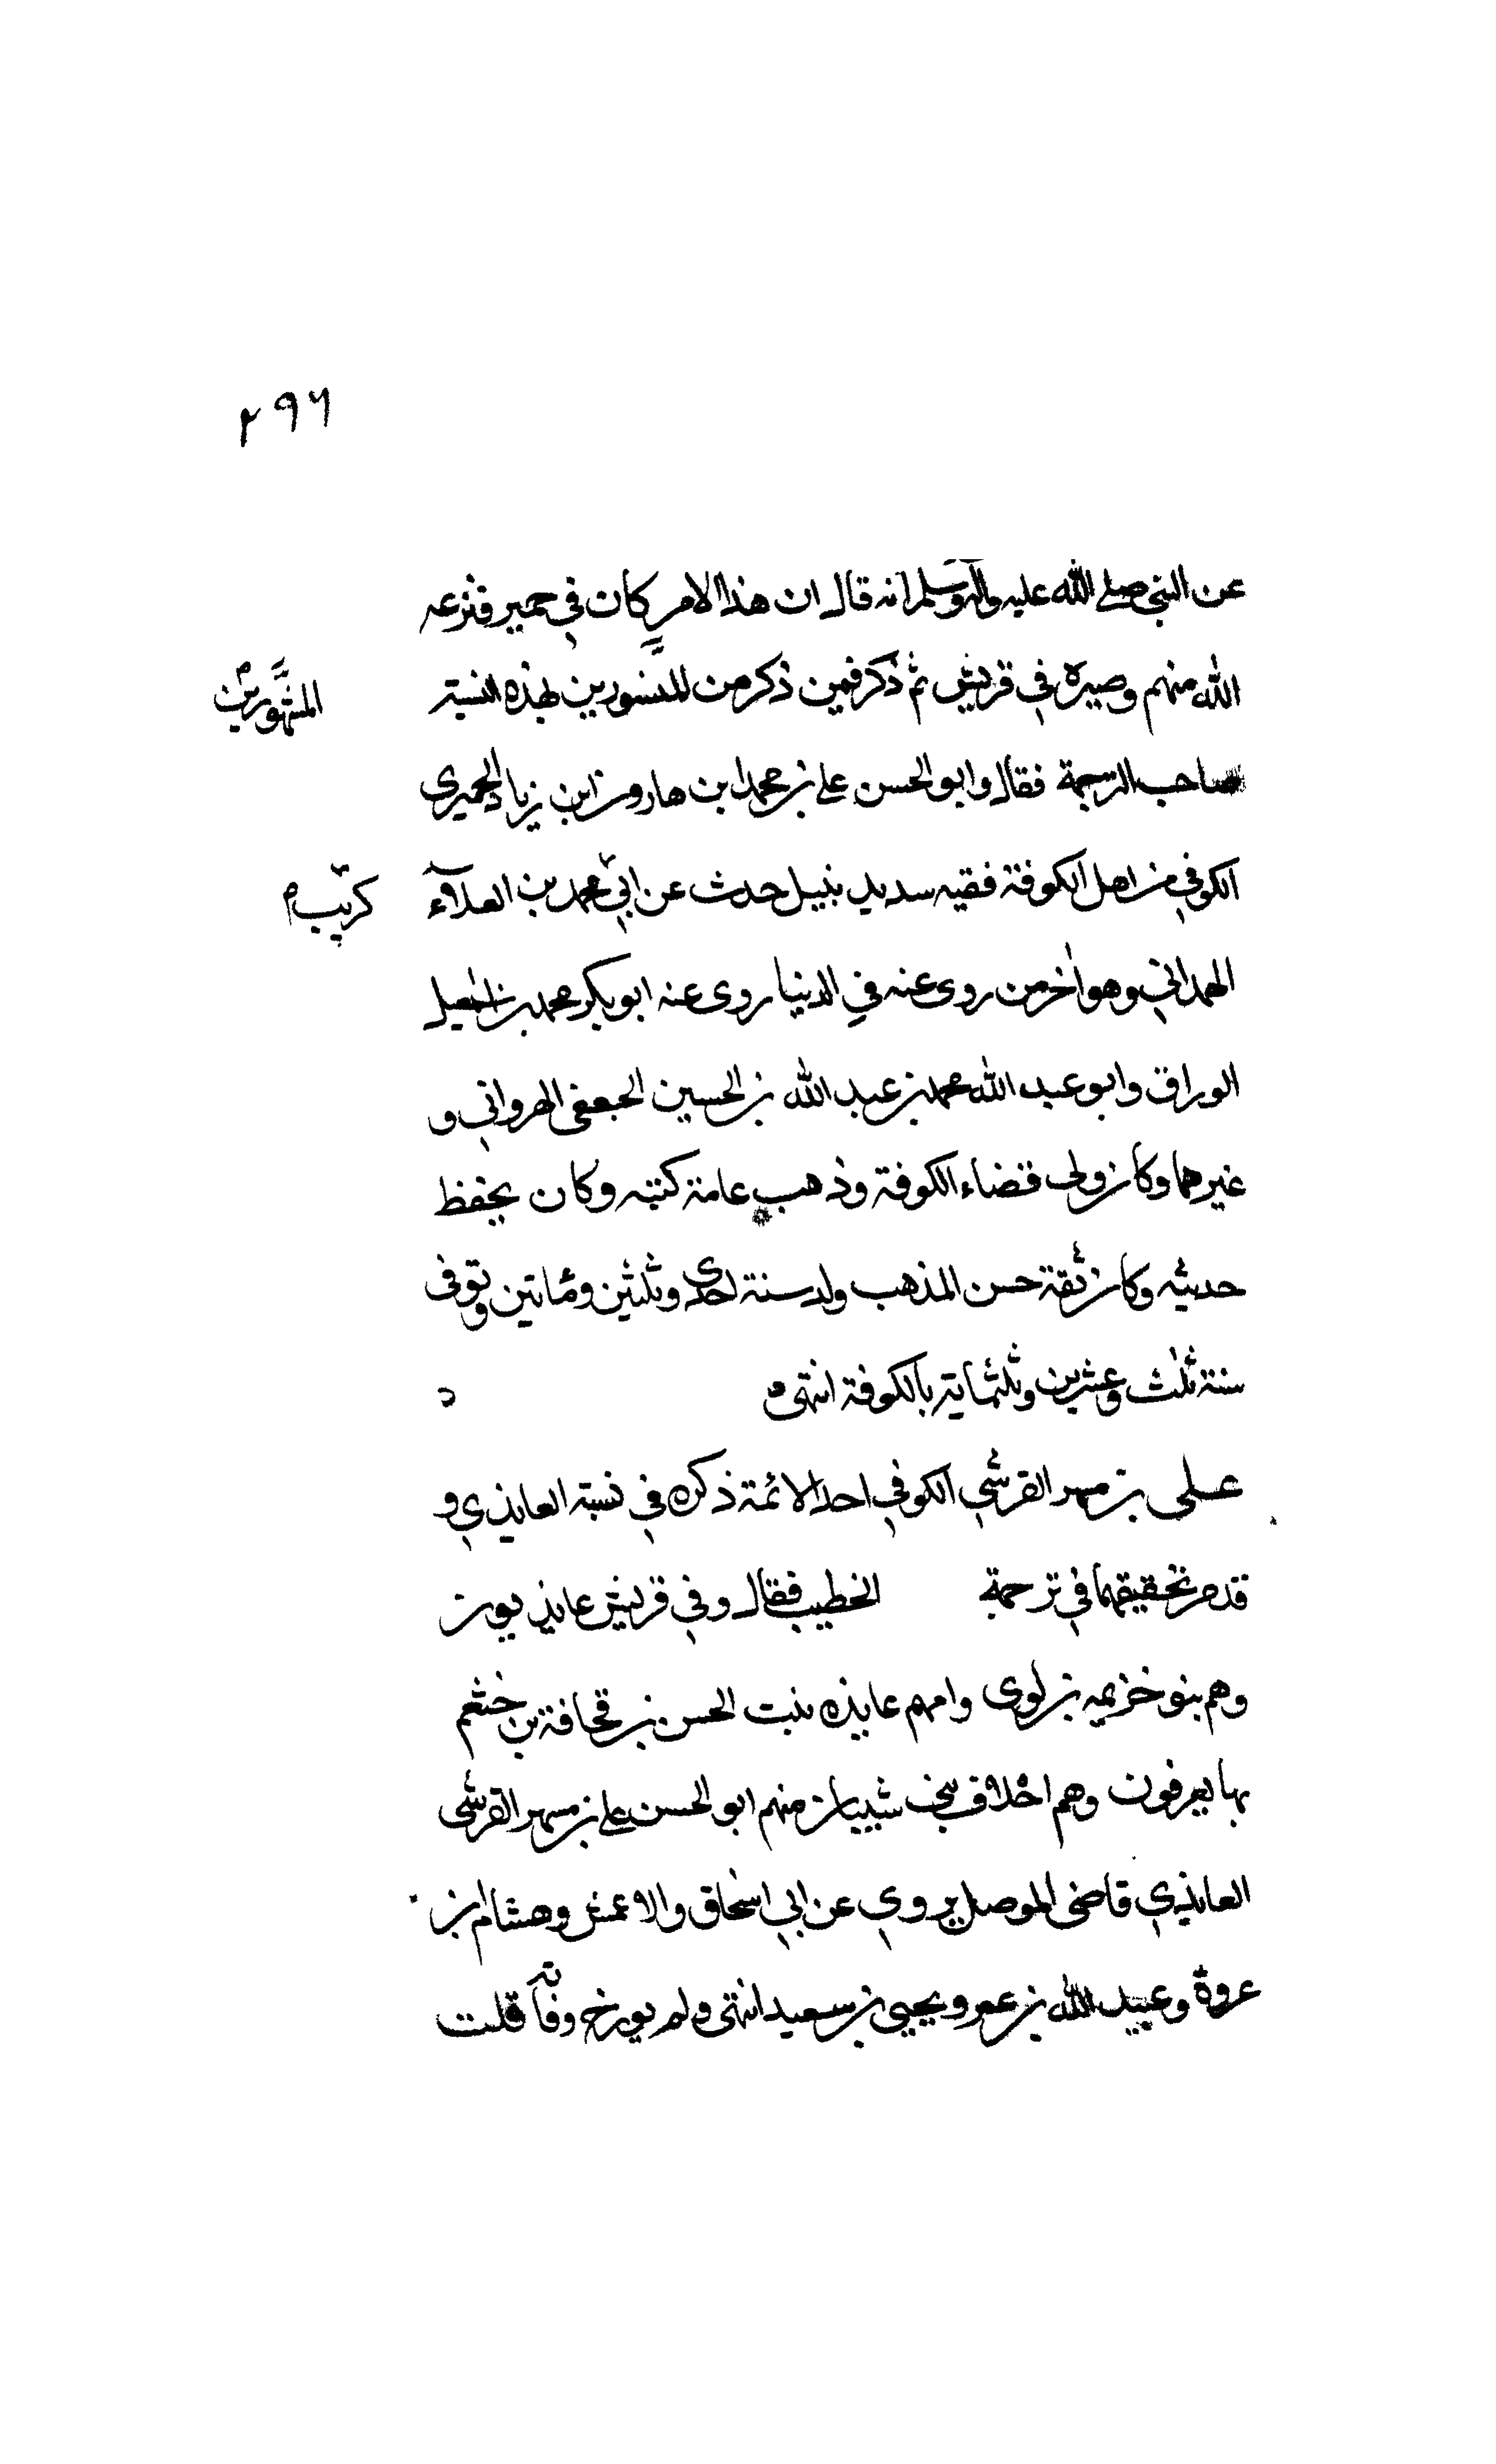 ٢٩٦
عن النبي صلى الله عليه وآله وسلم انه قال ان هذا الامر كان في حمير فنزعه
الله منهم وصيره في قريش ثم ذكر فمين ذكر من المنسورين بهذه النسبة
المشهورين
صاحب الترجمة فقال وابو الحسن على بن محمد ابن هارون ابن زياد الحميرى
الكوفي من اهل الكوفة فقيه سديد نبيل حدث عن ابي محمد بن العلآء
كريب م
الهمداني وهو اخر من روى عنه في الدنيا روى عنه ابو بكر محمد بن اسمعيل
الوراق وابو عبد الله محمد بن عبد الله بن الحسين الجعفى الهرواني و
غيرهما وكان ولى قضاء الكوفة وذهب عامة كتبه وكان يحفظ
حديثه وكان ثقة حسن المذهب ولد سنة احدى وثلثين ومأتين وتوفى
سنة ثلث وعشرين وثلثماية بالكوفة انتهى
علي بن مسهر القرشي الكوفي احد الائمة ذكره في نسبة العايذي و
قد مر تحقيقهما في ترجمة الخطيب فقال وفي قريش عايذيون
وهم بنو خزيمه بن لوى وامهم عايذه بنت الحسن بن قحافة بن خثعم
بها يعرفون وهم اخلاف شيبان منهم ابو الحسن على بن مسهر القرشى
العايذي قاضى الموصل يروي عن ابي اسحاق والاعمش وهشام بن
عروة وعبيد الله بن عمر ويحيى بن سعيد انتهى ولم يورخ وفاته قلت